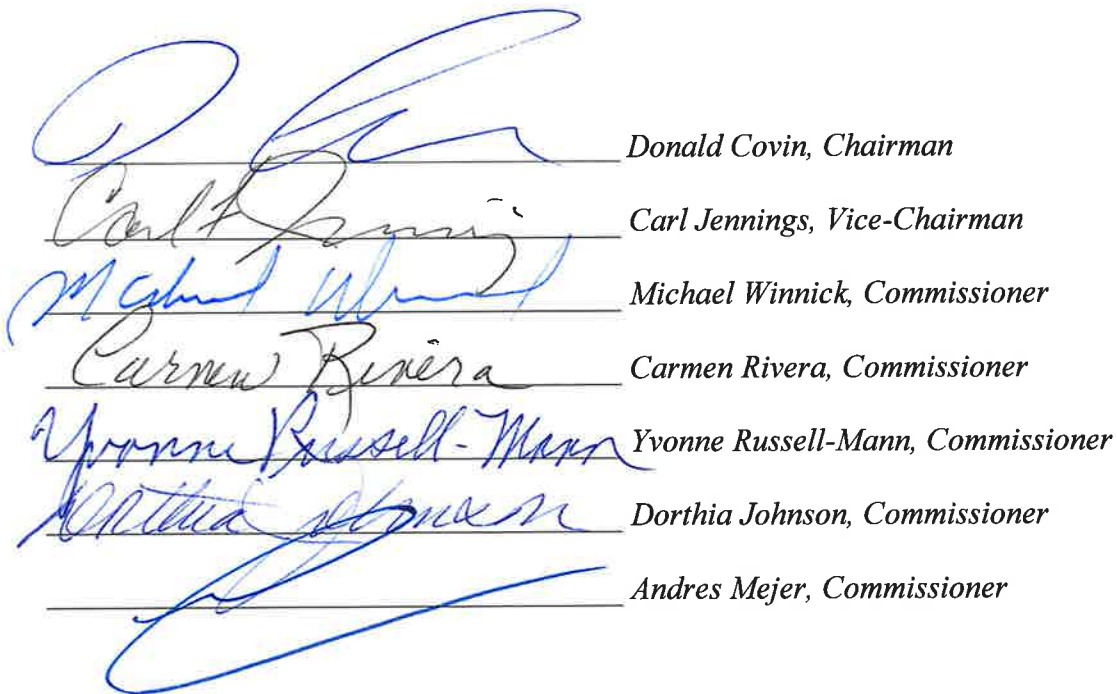 Donald Covin, Chairman
Carl Jennings, Vice-Chairman
Michael Winnick, Commissioner
Carmen Rivera Carmen Rivera, Commissioner
Yvonne Russell-Mann Yvonne Russell-Mann, Commissioner
Dorthia Johnson, Commissioner
Andres Mejer, Commissioner